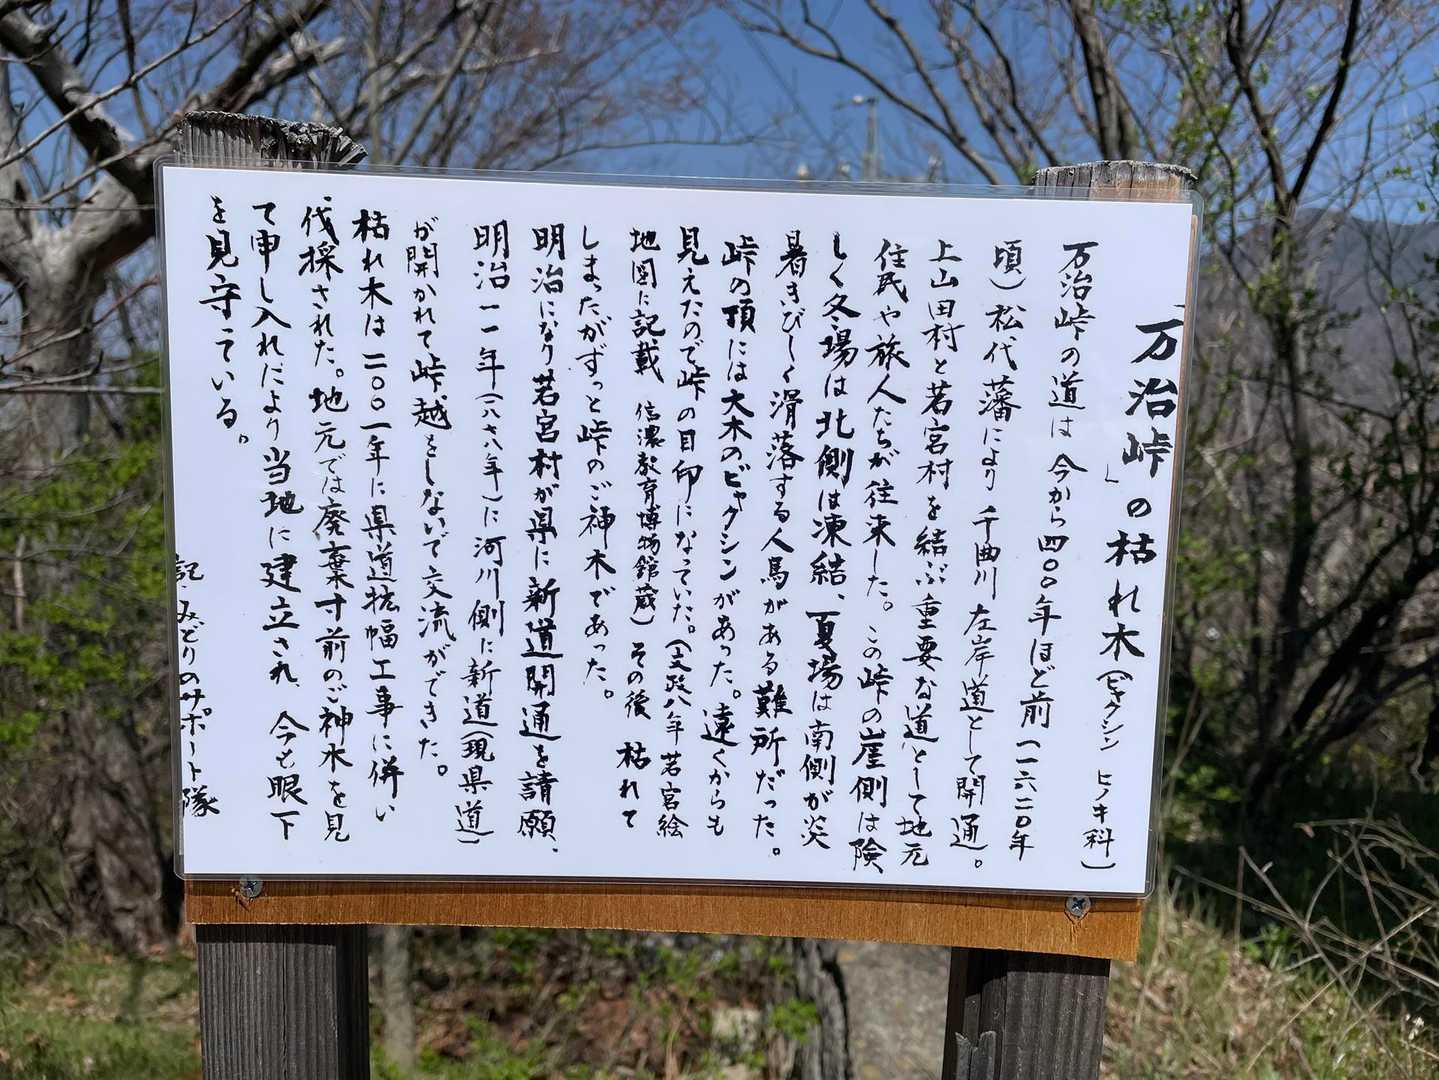 「万治峠」の枯れ木(ビャクシン ヒノキ科)
万治峠の道は今から四〇〇年ほど前(一六二〇年
頃)松代藩により千曲川左岸道として開通。
上山田村と若宮村を結ぶ重要な道として地元
住民や旅人たちが往来した。この峠の崖側は険
しく冬場は北側は凍結、夏場は南側が炎
暑きびしく滑落する人馬がある難所だった。
峠の頂には大木のビャクシンがあった。遠くからも
見えたので峠の目印になっていた。(文政八年 若宮絵
地図に記載 信濃教育博物館蔵)その後 枯れて
しまったがずっと峠のご神木であった。
明治になり若宮村が県に新道開通を請願、
明治一一年(一八七八年)に河川側に新道(現県道)
が開かれて峠越をしないで交流ができた。
枯れ木は二〇〇一年に県道拡幅工事に併い
伐採された。地元では廃棄寸前のご神木を見
て申し入れにより当地に建立され、今も眼下
を見守っている。
記:みどりのサポート隊